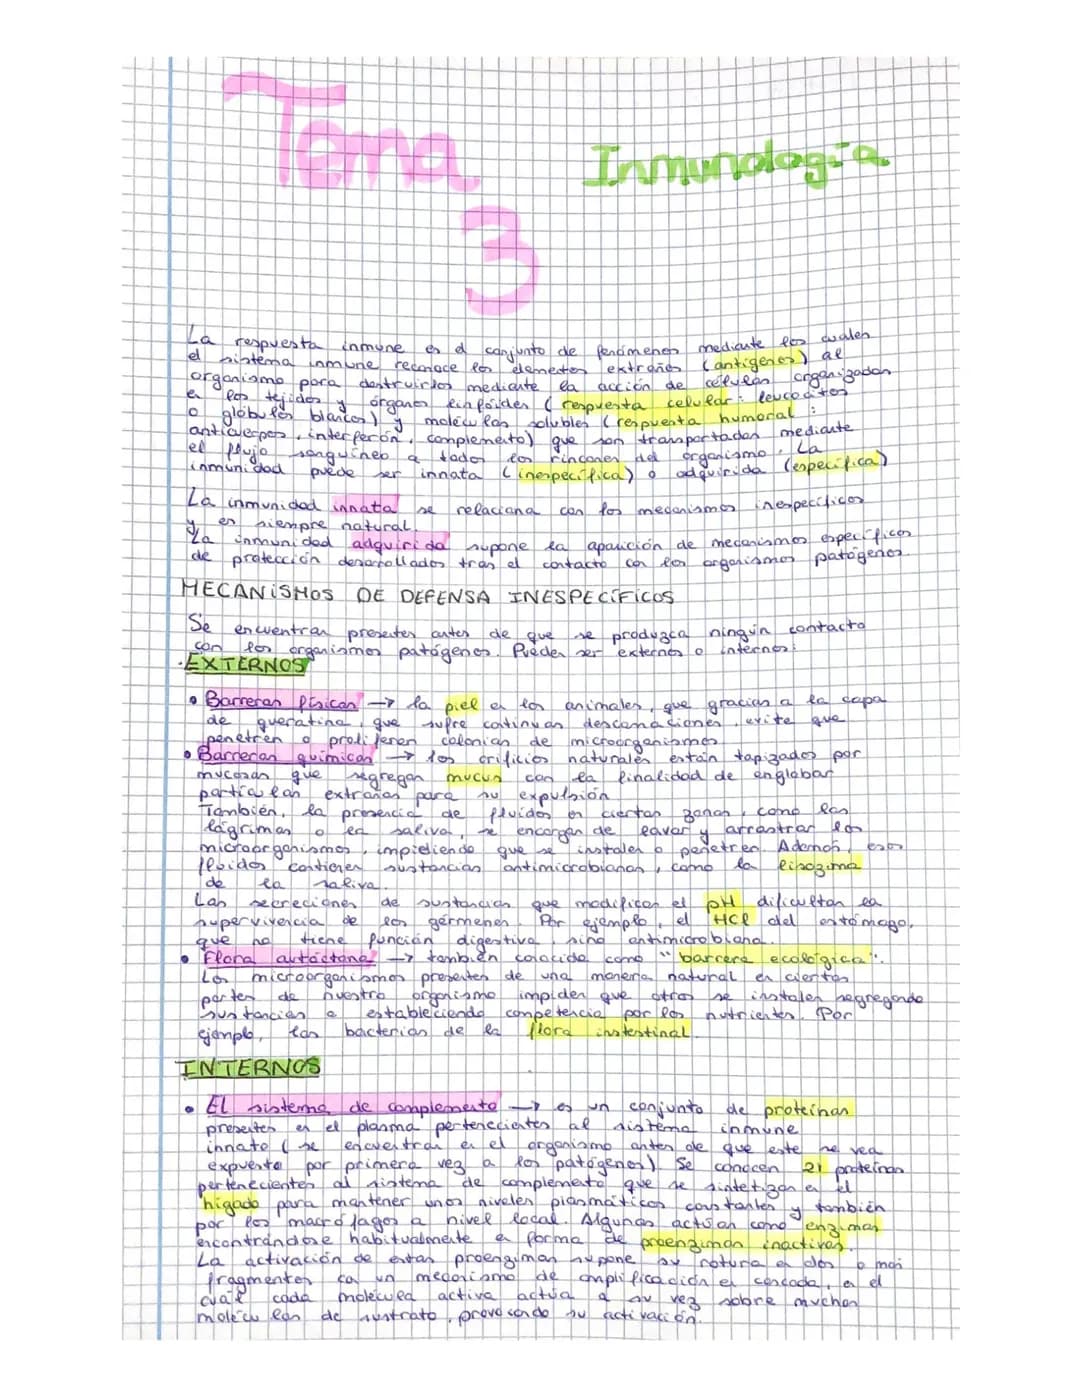 Tema
Inmunología
3
La respuesta inmune es el conjunto de fenómenos mediante los cuales
el sistema inmune reconoce los elementos extraños (antígenos) al
organismo para destruirlos mediante la acción de células organizadas
en los tejidos y órganos linfoides (respuesta celular: leucocitos
o glóbulos blancos) y moléculas solubles (respuesta humoral :
anticuerpos, interferón, complemento) que son transportadas mediante
el flujo sanguíneo a todos los rincones del organismo. La
inmunidad puede ser innata (inespecífica) o adquirida (específica)
La inmunidad innata se relaciona con los mecanismos inespecíficos
y es siempre natural.
La inmunidad adquirida supone la aparición de mecanismos específicos
de protección desarrollados tras el contacto con los organismos patógenos.
MECANISMOS DE DEFENSA INESPECÍFICOS
Se encuentran presentes antes de que se produzca ningún contacto
con los organismos patógenos. Pueden ser externos o internos:
·EXTERNOS
• Barreras físicas → la piel en los animales, que gracias a la capa
de queratina, que sufre continuas descamaciones, evite que
penetren o proliferen colonias de microorganismos
• Barreras químicas → los orificios naturales están tapizados por
mucosas que segregan mucus con la finalidad de englobar
partículas extrañas para su expulsión
También, la presencia de fluidos en ciertas zonas, como las
lágrimas o la saliva, se encargan de lavar y arrastrar los
microorganismos, impidiendo que se instalen o penetren. Además, esos
fluidos contienen sustancias antimicrobianas, como la lisozima
de la saliva.
Las secreciones de sustancias que modifican el pH dificultan la
supervivencia de los gérmenes. Por ejemplo, el HCl del estómago,
que no tiene función digestiva, sino antimicrobiana.
• Flora autóctona → también conocida como "barrera ecológica".
Los microorganismos presentes de una manera natural en ciertas
partes de nuestro organismo impiden que otros se instalen segregando
sustancias o estableciendo competencia por los nutrientes. Por
ejemplo, las bacterias de la flora instestinal.
INTERNOS
• El sistema de complemento → es un conjunto de proteínas
presentes en el plasma pertenecientes al sistema inmune
innato (se encuentran en el organismo antes de que este se vea
expuesto por primera vez a los patógenos). Se conocen 21 proteínas
pertenecientes al sistema de complemento que se sintetizan en el
hígado para mantener unos niveles plasmáticos constantes y también
por los macrófagos a nivel local. Algunas actúan como enzimas
encontrándose habitualmente en forma de proenzimas inactivas.
La activación de estas proenzimas supone su rotura en dos o más
fragmentos con un mecanismo de amplificación en cascada, en el
cual cada molécula activa actúa a su vez sobre muchas
moléculas de sustrato, provocando su activación.